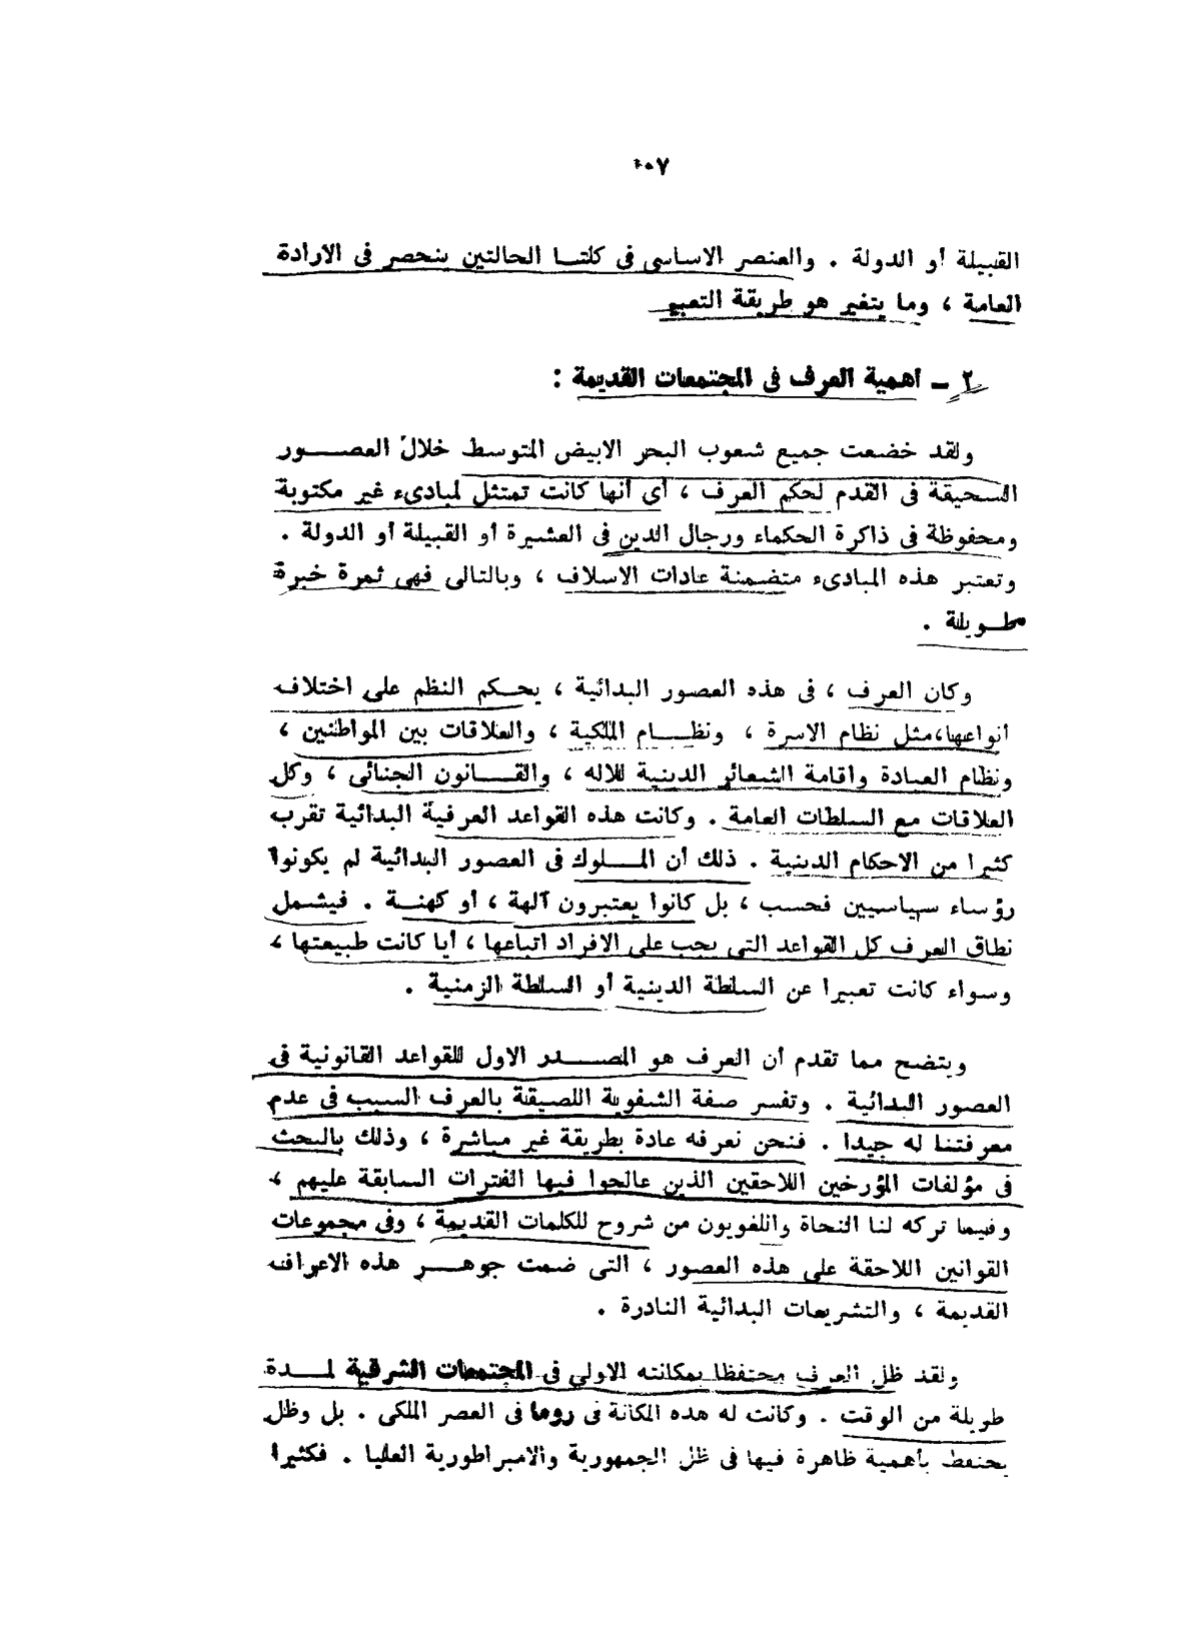 القبيلة أو الدولة . والعنصر الاساسى فى كلتــا الحالتين ينحصر فى الارادة
العامة ، وما يتغير هو طريقة التعبير
٢ ـ اهمية العرف فى المجتمعات القديمة :
ولقد خضعت جميع شعوب البحر الابيض المتوسط خلال العصـــــور
السحيقة فى القدم لحكم العرف ، أى أنها كانت تمتثل لمبادىء غير مكتوبة
ومحفوظة فى ذاكرة الحكماء ورجال الدين فى العشيرة أو القبيلة أو الدولة .
وتعتبر هذه المبادىء متضمنة عادات الاسلاف ، وبالتالى فهى ثمرة خبرة
طـــويلة .
وكان العرف ، فى هذه العصور البدائية ، يحــكم النظم على اختلاف
أنواعها،مثل نظام الاسرة ، ونظــــام الملكية ، والعلاقات بين المواطنين ،
ونظام العبادة واقامة الشعائر الدينية للاله ، والقــــانون الجنائى ، وكل
العلاقات مع السلطات العامة . وكانت هذه القواعد العرفية البدائية تقرب
كثيرا من الاحكام الدينية . ذلك أن المـــلوك فى العصور البدائية لم يكونوا
رؤساء سياسيين فحسب ، بل كانوا يعتبرون آلهة ، أو كهنــة . فيشمل
نطاق العرف كل القواعد التى يجب على الافراد اتباعها ، أيا كانت طبيعتها ،
وسواء كانت تعبيرا عن السلطة الدينية أو السلطة الزمنية .
ويتضح مما تقدم أن العرف هو المصـــــدر الاول للقواعد القانونية فى
العصور البدائية . وتفسر صفة الشفوية اللصيقة بالعرف السبب فى عدم
معرفتنا له جيدا . فنحن نعرفه عادة بطريقة غير مباشرة ، وذلك بالبحث
فى مؤلفات المؤرخين اللاحقين الذين عالجوا فيها الفترات السابقة عليهم ،
وفيما تركه لنا النحاة واللغويون من شروح للكلمات القديمة ، وفى مجموعات
القوانين اللاحقة على هذه العصور ، التى ضمت جوهـــــر هذه الاعراف
القديمة ، والتشريعات البدائية النادرة .
ولقد ظل العرف محتفظا بمكانته الاولى فى المجتمعات الشرقية لمـــــدة
طويلة من الوقت . وكانت له هذه المكانة فى روما فى العصر الملكى . بل وظل
يحتفظ بأهمية ظاهرة فيها فى ظل الجمهورية والامبراطورية العليا . فكثيرا